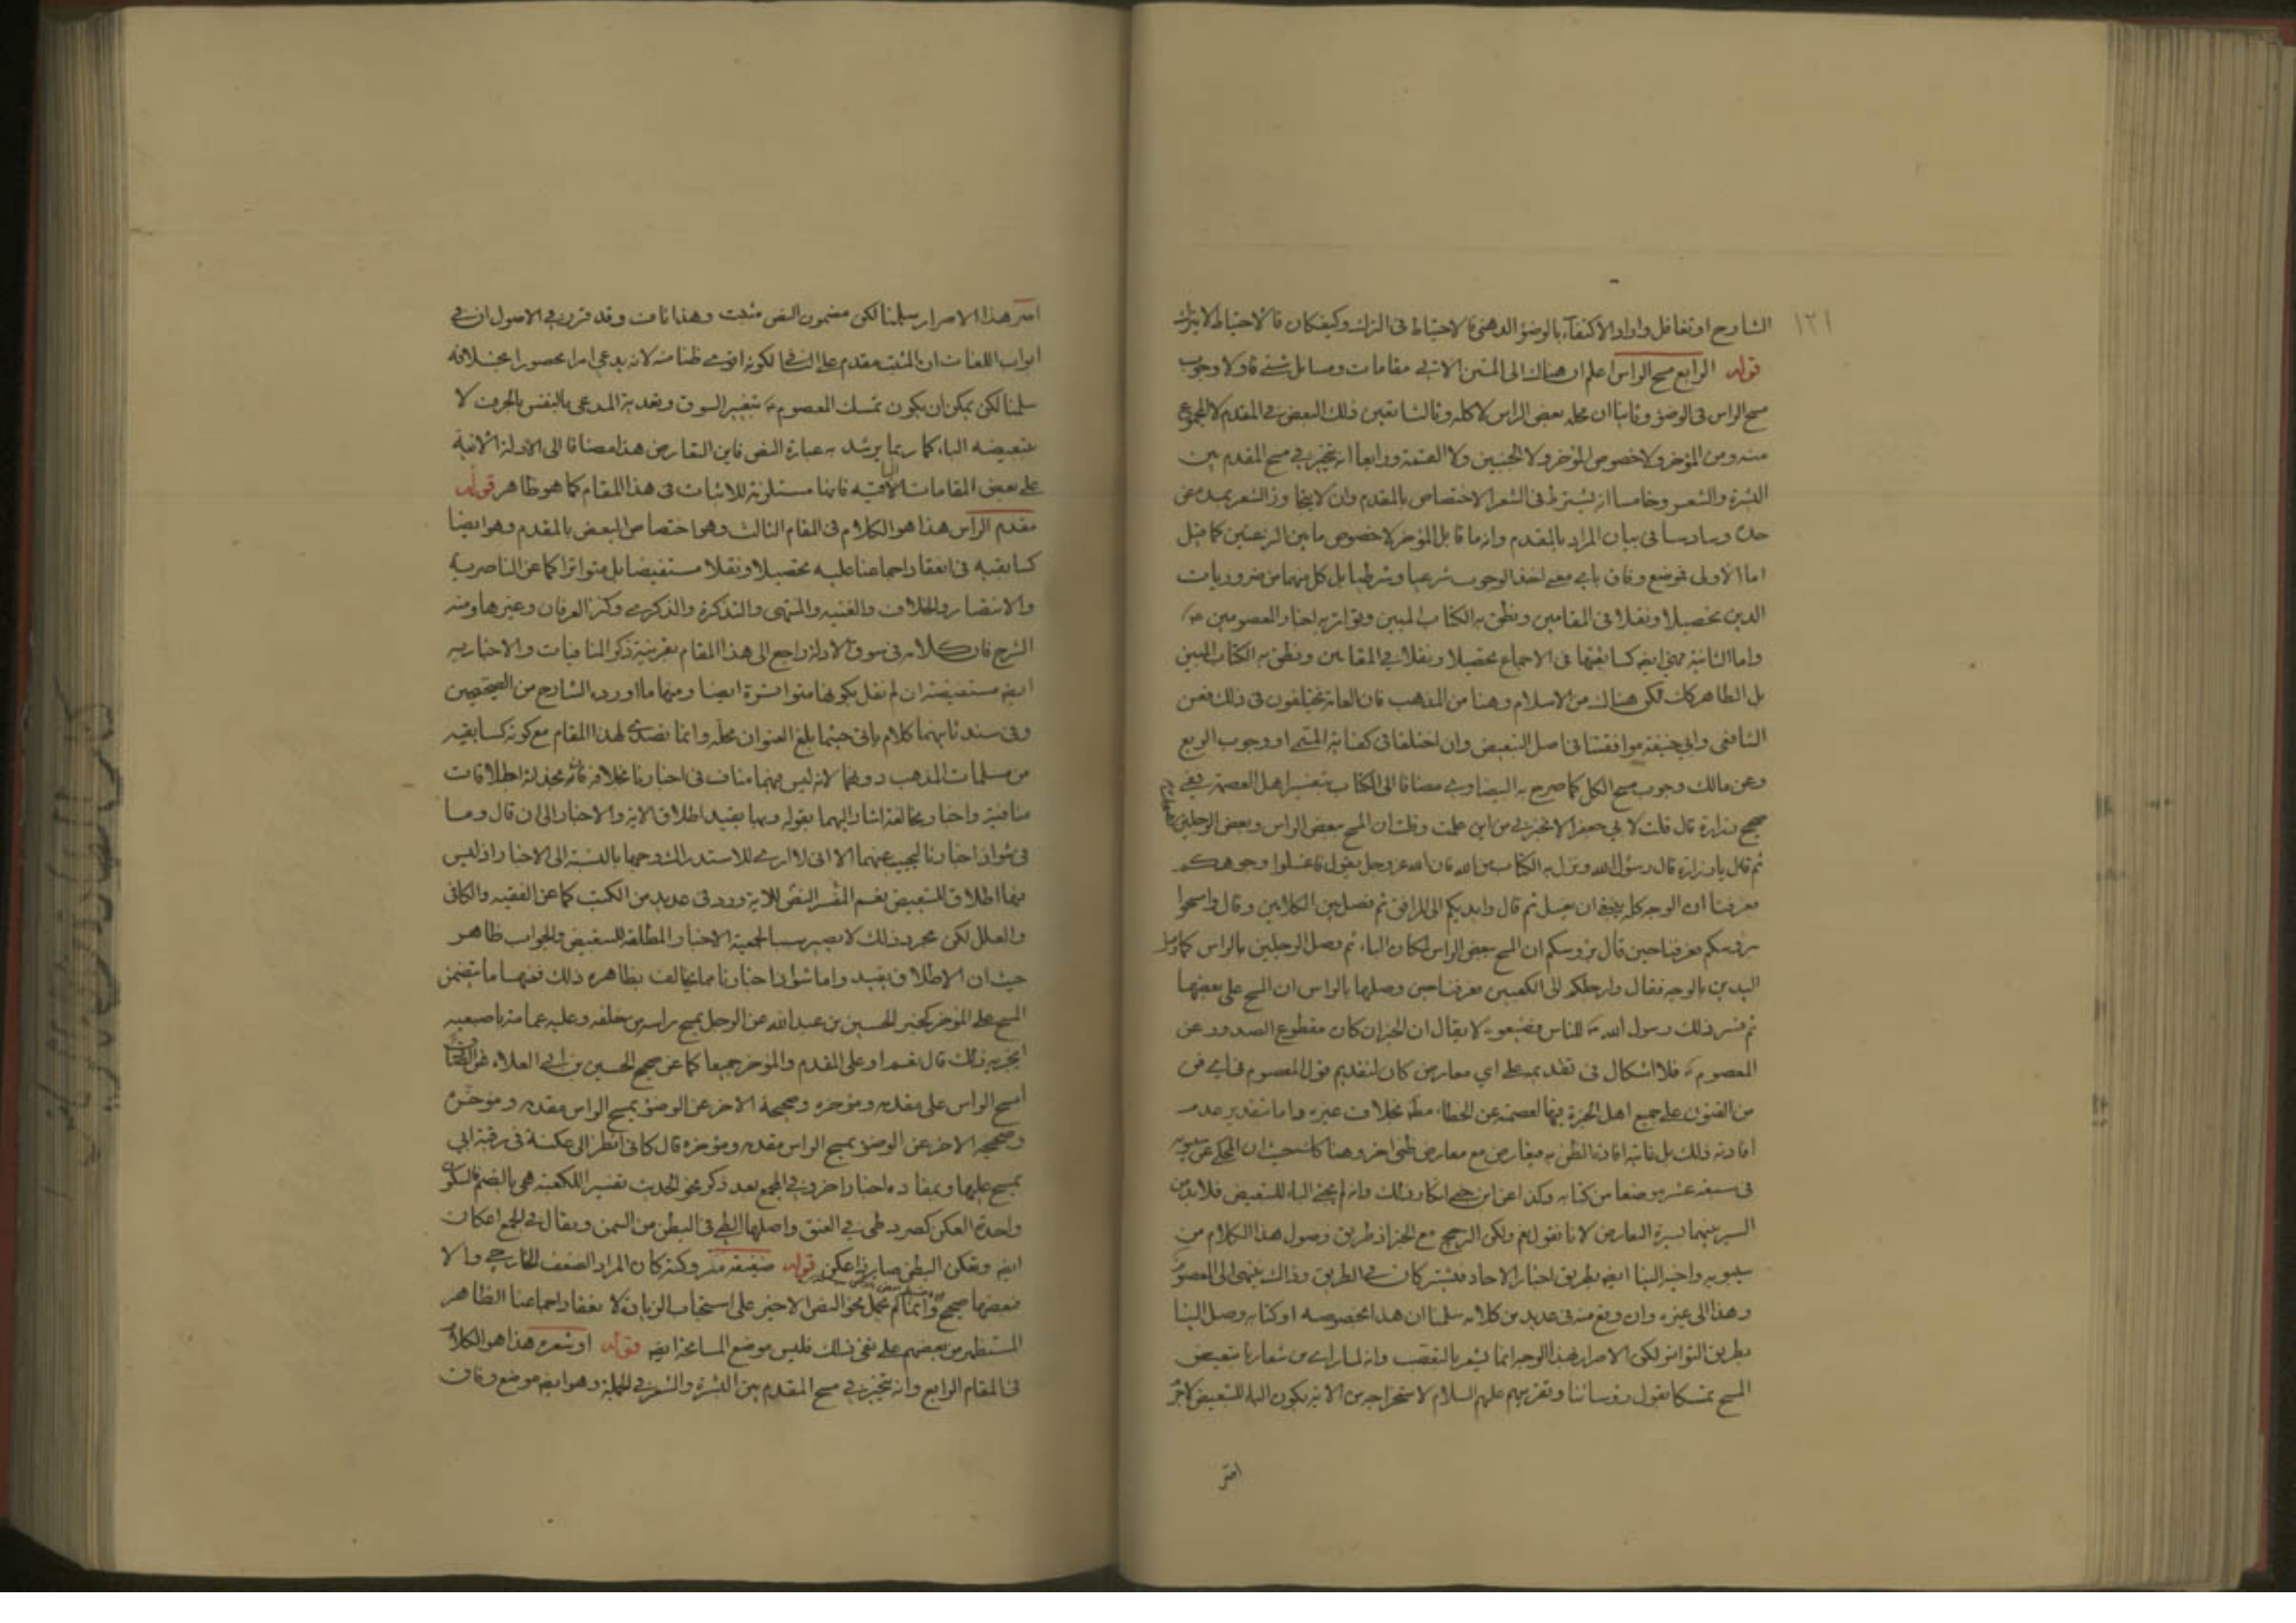 ١٢١
الشارح او تغافل واراد الاكتفاء بالوضوء الدهنى فالاحتياط فى الترك وكيف كان فالاحتياط لا يترك
قوله الرابع مسح الراس اعلم ان هناك الى المتن الاتي مقامات ومسائل شتى فاولا وجوب
مسح الراس فى الوضوء وثانيا ان محله بعض الراس لا كله وثالثا تعين ذلك البعض في المقدم لا المجموع
منه ومن المؤخر ولا خصوص المؤخر ولا الجنبين ولا القمة ورابعا انه يتخير في مسح المقدم بين
البشرة والشعر وخامسا انه يشترط فى الشعر الاختصاص بالمقدم وان لا يتجاوز الشعر بمده عن
حده وسادسا فى بيان المراد بالمقدم وانه ما قابل المؤخر لا خصوص ما بين النزعتين كما قيل
اما الاولى فموضع وفاق باي معنى اخذ الوجوب شرعيا وشرطيا بل كل منهما من ضروريات
الدين تحصيلا ونقلا فى المقامين ونطق به الكتاب المبين وتواتر به اخبار المعصومين ع
واما الثانية فهي ايضا كسابقتها فى الاجماع تحصيلا ونقلا في المقامين ونطق به الكتاب المبين
بل الظاهر كك لكن هناك من الاسلام وهنا من المذهب فان العامة يختلفون فى ذلك فعن
الشافعى وابي حنيفة موافقتنا فى اصل التبعيض وان اختلفا فى كفاية المسمى او وجوب الربع
وعن مالك وجوب مسح الكل كما صرح به البيضاوي مضافا الى الكتاب بتفسير اهل العصمة ففي
صحيح زرارة قال قلت لابي جعفر الا تخبرني من اين علمت وقلت ان المسح ببعض الراس وبعض الرجلين
ثم قال يا زرارة قال رسول الله ونزل به الكتاب من الله فان الله عز وجل يقول فاغسلوا وجوهكم
فعرفنا ان الوجه كله ينبغي ان يغسل ثم قال وايديكم الى المرافق ثم فصل بين الكلامين وقال وامسحوا
برؤسكم فعرفنا حين قال برؤسكم ان المسح ببعض الراس لمكان الباء ثم وصل الرجلين بالراس كما وصل
اليدين بالوجه فقال وارجلكم الى الكعبين فعرفنا حين وصلها بالراس ان المسح على بعضها
ثم فسر ذلك رسول الله ص للناس فضيعوه لا يقال ان الخبر ان كان مقطوع الصدور عن
المعصوم ع فلا اشكال فى تقديمه على اي معارض كان لتقديم قول المعصوم في اي فن
من الفنون على جميع اهل الخبرة فيها لعصمته عن الخطاء مطلقا بخلاف غيره واما بتقدير عدم
افادته ذلك بل غايته افادة الظن به فيعارض مع معارض ظنى اخر وهنا كك حيث ان المحكي عن سيبويه
فى سبعة عشر موضعا من كتابه وكذا عن ابن جنى انكار ذلك وانه لم يجئ الباء للتبعيض فلابد من
السير بينهما سيرة التعارض لانا نقول نعم ولكن الترجيح مع الخبر اذ طريق وصول هذا الكلام من
سيبويه واخبر الينا ايضا بطريق اخبار الاحاد فيشتركان في الطريق وذاك ينتهى الى المعصوم
وهذا الى غيره وان وقع منه فى عديد من كلامه سلمنا ان هذا بخصوصه او كتابه وصل الينا
بطريق التواتر لكن الاصرار بهذا الوجه انما يشعر بالتعصب وانه لما راى من شعارنا تبعيض
المسح تمسكا بقول رؤسائنا وتقريبهم عليهم السلام لاستخراجه من الاية بكون الباء للتبعيض لاجرم
اصر
اصر هذا الاصرار سلمنا لكن مضمون النص مثبت وهذا ناف وقد قرر في الاصول ان في
ابواب اللغات ان المثبت مقدم على النافى لكونه اقوى ظنا منه لانه يدعي امرا محصورا بخلافه
سلمنا لكن يمكن ان يكون تمسك المعصوم ع بتغيير السوق وتعدية المدعى بالنفس بالحرف لا
بتبعيضه الباء كما ربما يرشد به عبارة النص فاين التعارض هذا مضافا الى الادلة الاتية
على بعض المقامات الاتية فانها مستلزمة للاثبات فى هذا المقام كما هو ظاهر قوله
مقدم الراس هذا هو الكلام فى المقام الثالث وهو اختصاص البعض بالمقدم وهو ايضا
كسابقيه فى انعقاد اجماعنا عليه تحصيلا ونقلا مستفيضا بل متواترا كما عن الناصرية
والانتصار والخلاف والغنيه والمنتهى والتذكرة والذكرى وكنز العرفان وغيرها ومنه
الشرح فان كلامه فى سوق الادلة راجع الى هذا المقام بقرينة ذكر المنافيات والاخبار به
ايضا مستفيضة ان لم نقل بكونها متواترة ايضا ومنها ما اورده الشارح من الصحيحين
وفى سند ثانيهما كلام ياتى حيثما بلغ العنوان محله وانما تصدى لهذا المقام مع كونه كسابقيه
من مسلمات المذهب دونهما لانه ليس فيهما مناف فى اخبارنا بخلافه فانه يحذ له اطلاقات
منافية واخبار مخالفة اشار اليهما بقوله وبها يقيد اطلاق الاية والاخبار الى ان قال وما
فى شواذ اخبارنا ليجيب عنهما الا انى لا ارى للاستدراك وجها بالنسبة الى الاخبار اذ ليس
فيها اطلاق التبعيض نعم المفسر النص للاية ورد فى عديد من الكتب كما عن الفقيه والكافى
والعلل لكن مجرد ذلك لا يصير سببا لجمعية الاخبار المطلقه للتبعيض والجواب ظاهر
حيث ان الاطلاق يقيد واما شواذ اخبارنا مما يخالف بظاهره ذلك فمنها ما يتضمن
المسح على المؤخر كخبر الحسين بن عبد الله عن الرجل يمسح راسه من خلفه وعليه عمامة باصبعيه
ايجزيه ذلك قال نعم او على المقدم والمؤخر جميعا كما عن صحيح الحسين بن ابي العلاء عن
امسح الراس على مقدمه ومؤخره وصحيحه الاخر عن الوضوء يمسح الراس مقدمه ومؤخره
وصحيحه الاخر عن الوضوء بمسح الراس مقدمه ومؤخره قال كانى انظر الى عكنة فى رقبة ابي
يمسح عليها وبمفاده اخبار اخر وفي المجمع بعد ذكر نحو الحديث تفسير العكنة هي بالضم فالسكون
واحدة العكن كصرد طى في العنق واصلها الطي فى البطن من السمن ويقال في الجمع اعكان
ايضا وتعكن البطن صار ذا عكن قوله ضعيفة متروكة كان المراد الضعف الخارجي والا
فبعضها صحيح وانما لم نحمل نحو النص الاخير على استحباب الزيادة لانعقاد اجماعنا الظاهر
المستظهر من بعضهم على نفي ذلك فليس موضع المسامحة ايضا قوله او شعره هذا هو الكلام
فى المقام الرابع وانه يتخير في مسح المقدم بين البشرة والشعر في الجملة وهو ايضا موضع وفاق